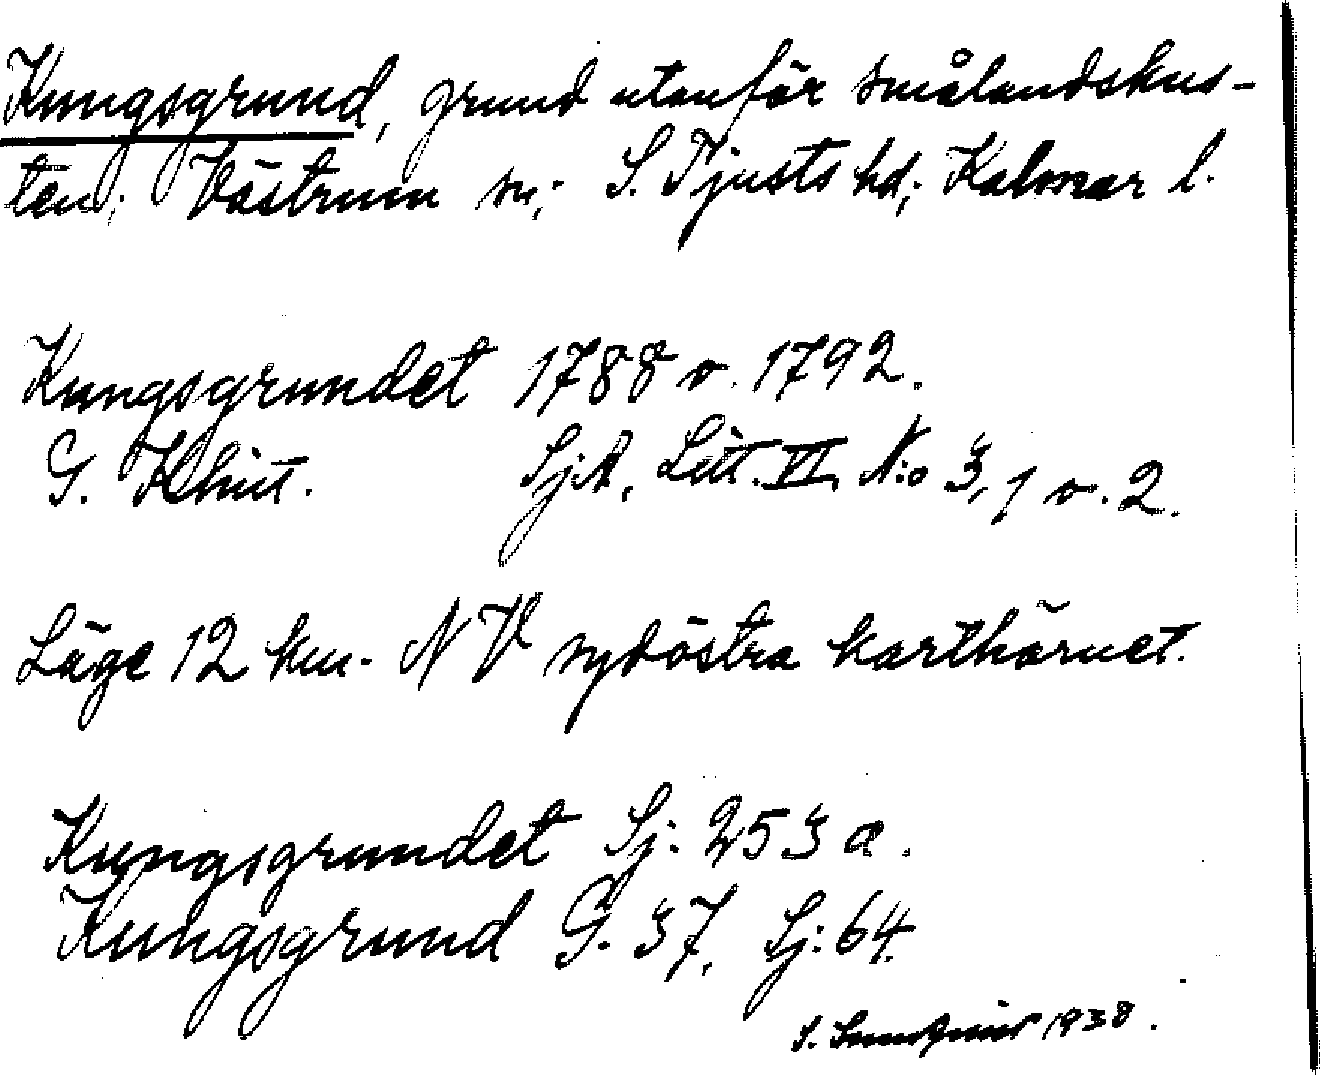 Kungsgrund, grund utanför smålandskus-
ten; Västrum sn; S. Tjusts hd; Kalmar l.
Kungsgrundet 1788 o. 1792.
G. Klint. SjA, Litt. VI, N:o 3, 1 o. 2.
Läge 12 km. NV sydöstra karthörnet.
Kungsgrundet Sj. 253 a.
Kungsgrund G. 37, Sj: 64.
S. 1938.